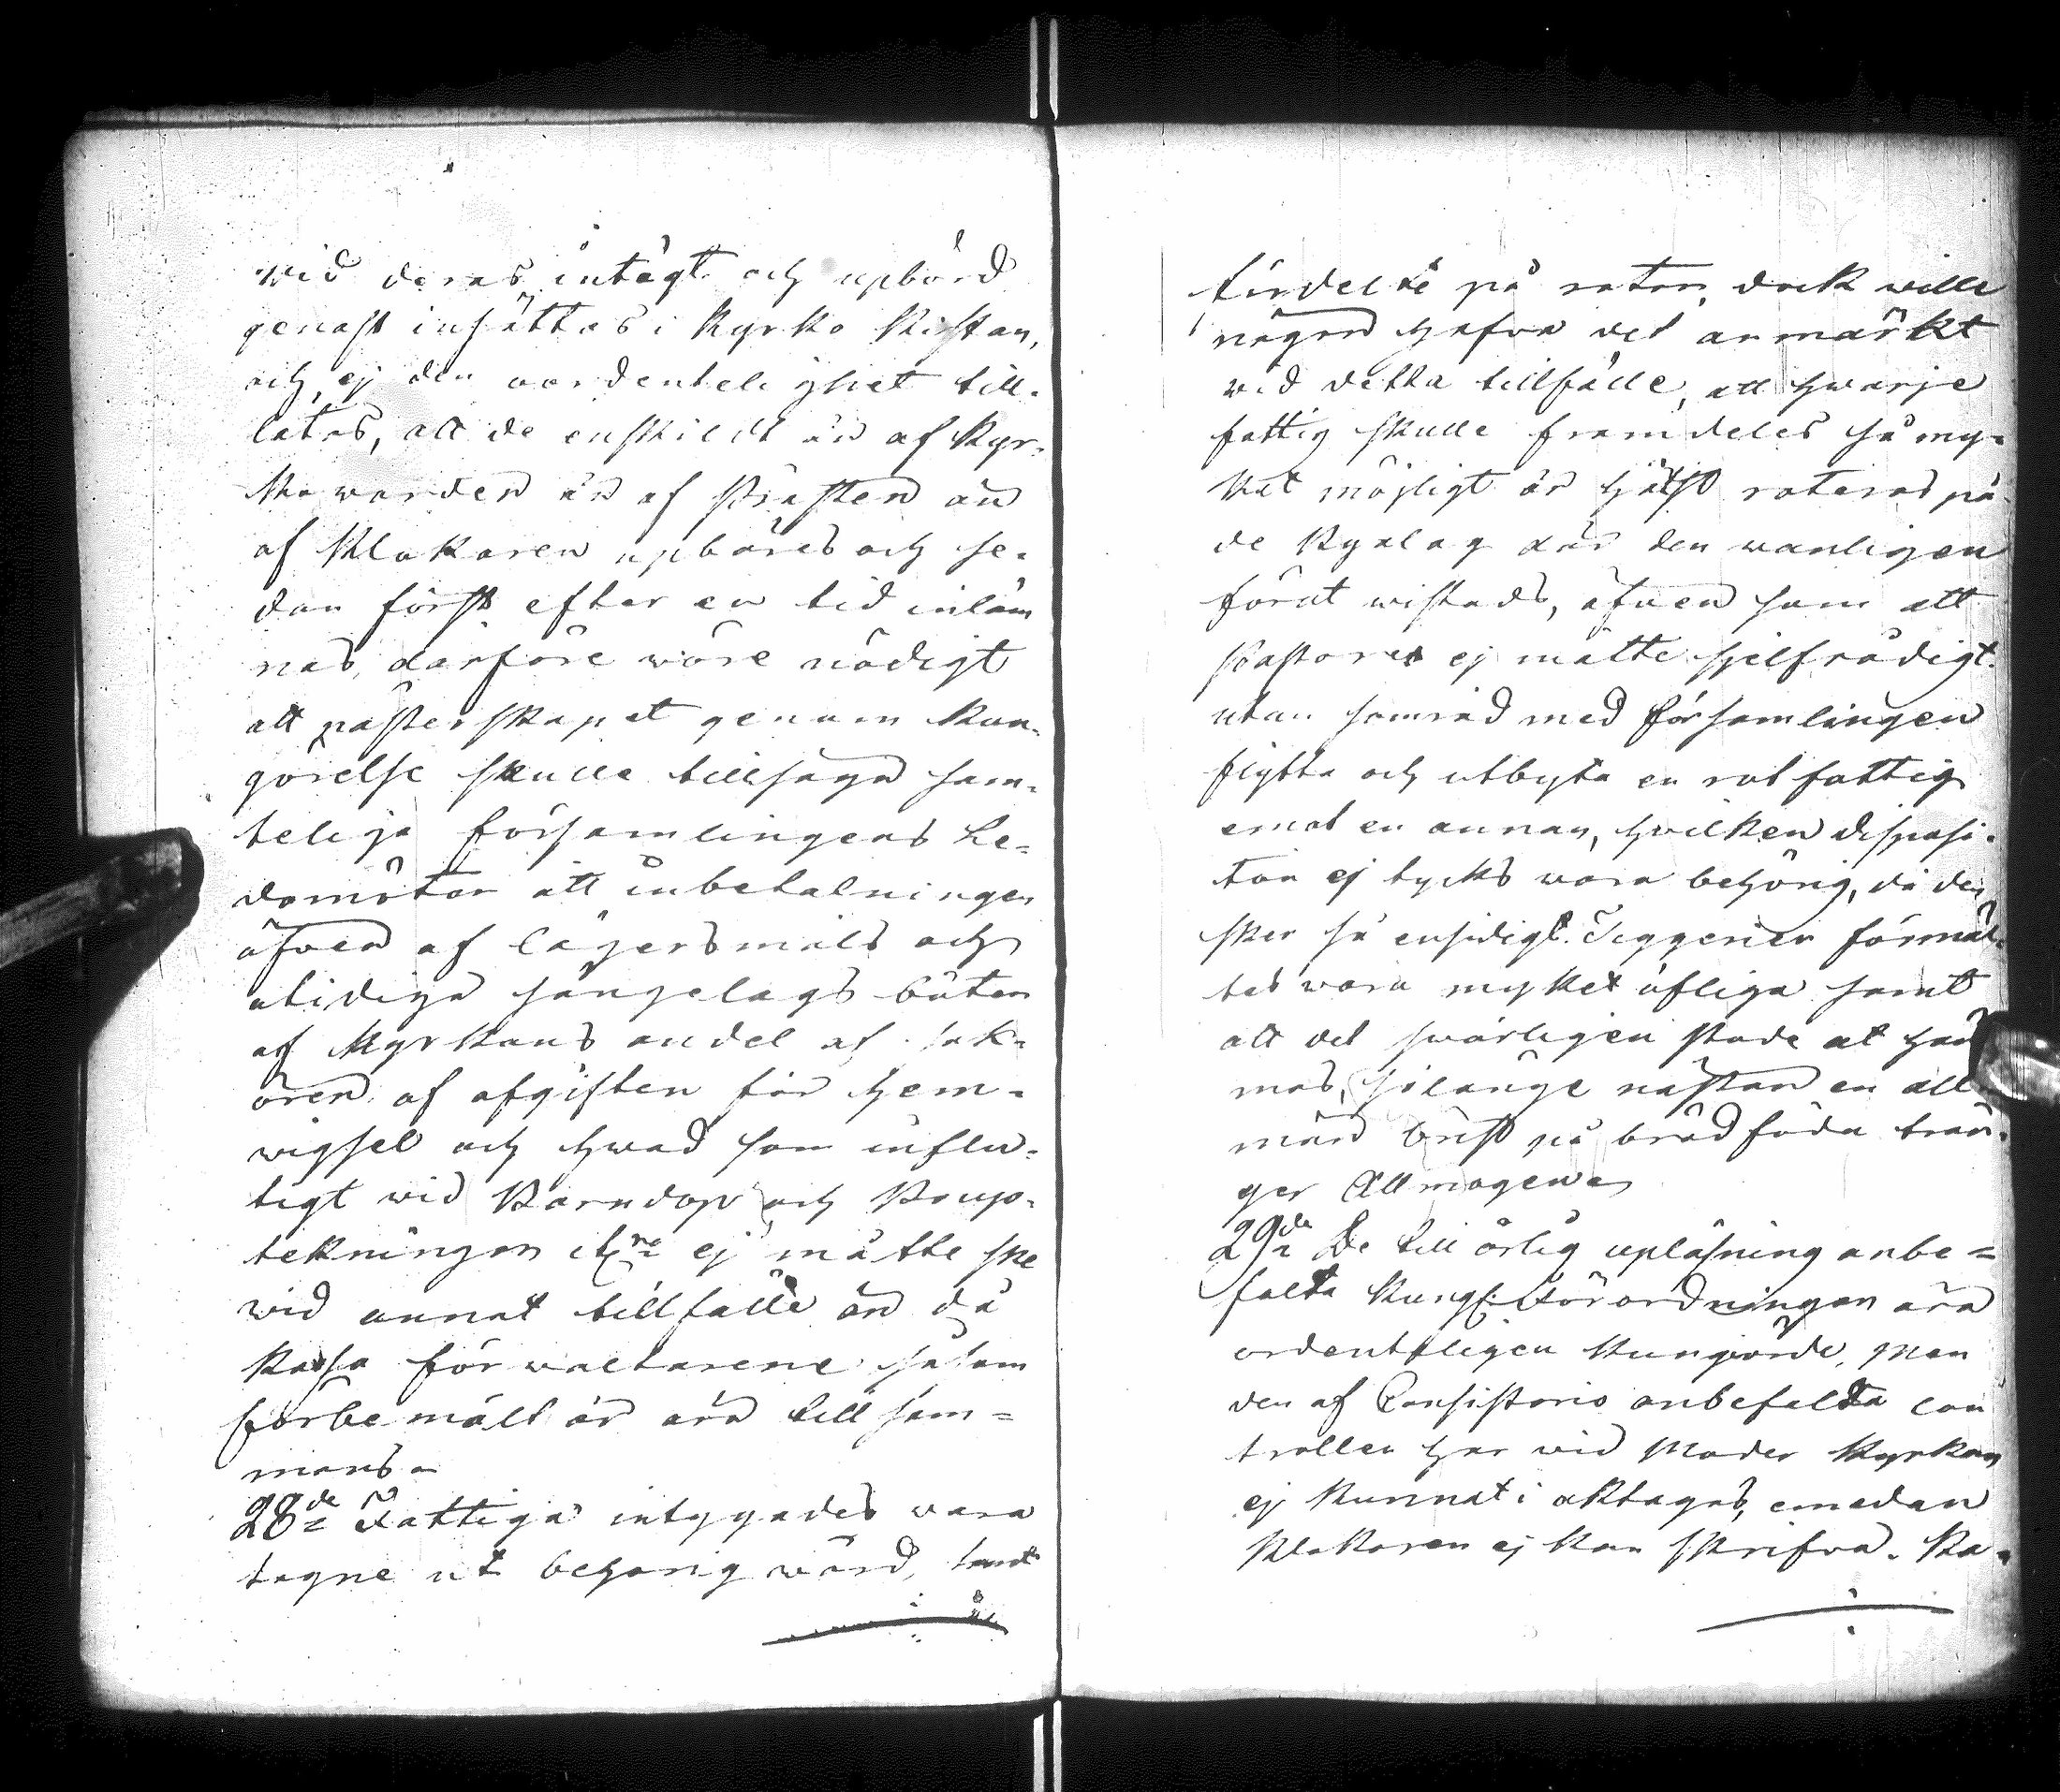 wid deras intägt och upbörd
genast insättas i Kyrko Kistan,
och ej den oordentelighet till-
låtas, att de enskildt än af Kyr-
ko warden än af Prästen än
af Klokaren upbäres och se-
dan först efter en tid inläm
nas, därföre wore nödigt
att prästerskapet genom kun-
görelse skulle tillsäga sam-
telige församlingens Le-
damöter att inbetalningen
äfven af lägersmåls och
otidiga sängelags böter
af Kyrkans andel af sak-
ören, af afgiften för hem-
wigsel och hwad som influ-
tigt wid Barndop och
tekningen etc ej måtte ske
wid annat tillfälle än då
Kassa förwaltarene såsom
förbemält är äro till sam-
mans.
28de Fattiga intygades wara
tagne ut behörig wård, samt
indelte på rotar, dock wille
någre hafva det anmärkt
wid detta tillfälle, att hwarje
fattig skulle framdeles så my-
ket möjligt är hälst roteras på
de Byalag där den wanligen
förut wistads, äfven som att
Pastores ej måtte sjelfrådigt
utan samråd med församlingen
flytta och utbyta en rotfattig
emot en annan, hvilken disposi-
tion ej tycks wara behörig, då den
sker så ensidigt. Tiggerier förmäl-
tes wara myket öfliga samt
att det swårligen stode at häm
mas, så länge nästan en all-
män brist på brödföda trän-
ger Allmogen
29de De till årlig upläsning anbe-
falta Kungl. Förordningar äro
ordentligen kungjorde, men
den af Consistorio anbefalda con
trollen har wid Moder Kyrkan
ej kunnat i akttagas, emedan
Klokaren ej kan skrifva. Ka-